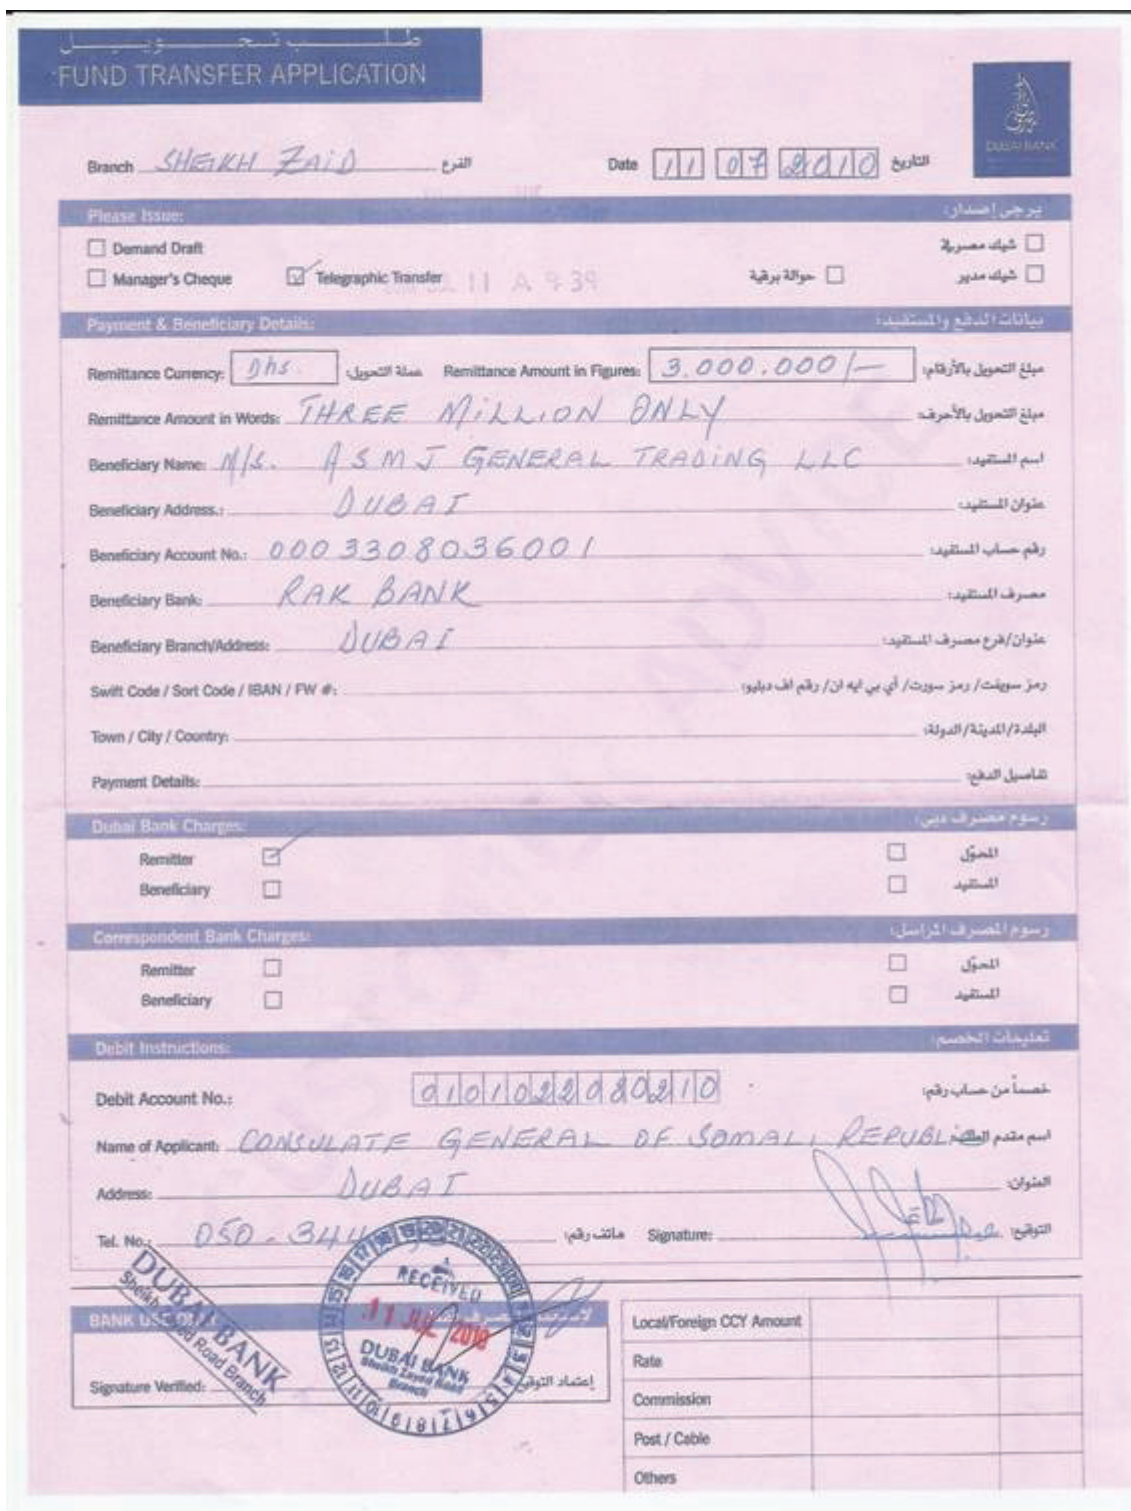 طلب تحويل
FUND TRANSFER APPLICATION
DUBAI BANK
Branch SHEIKH ZAID الفرع Date 11 07 2010 التاريخ
Please Issue: يرجى إصدار:
Demand Draft شيك مصرفي
Manager's Cheque Telegraphic Transfer حوالة برقية شيك مدير
11 A 9:39
Payment & Beneficiary Details: بيانات الدفع والمستفيد:
Remittance Currency: Dhs. عملة التحويل: Remittance Amount in Figures: 3.000.000/- مبلغ التحويل بالأرقام:
Remittance Amount in Words: THREE MILLION ONLY مبلغ التحويل بالأحرف:
Beneficiary Name: M/S. ASMJ GENERAL TRADING LLC اسم المستفيد:
Beneficiary Address.: DUBAI عنوان المستفيد:
Beneficiary Account No.: 0003308036001 رقم حساب المستفيد:
Beneficiary Bank: RAK BANK مصرف المستفيد:
Beneficiary Branch/Address: DUBAI عنوان/فرع مصرف المستفيد:
Swift Code / Sort Code / IBAN / FW #: رمز سويفت/ رمز سورت/ أي بي ايه ان/ رقم اف دبليو:
Town / City / Country: البلدة/المدينة/الدولة:
Payment Details: تفاصيل الدفع:
Dubai Bank Charges: رسوم مصرف دبي:
Remitter المحوّل
Beneficiary المستفيد
Correspondent Bank Charges: رسوم المصرف المراسل:
Remitter المحوّل
Beneficiary المستفيد
Debit Instructions: تعليمات الخصم:
Debit Account No.: 0101022080210 خصماً من حساب رقم:
Name of Applicant: CONSULATE GENERAL OF SOMALI REPUBLIC اسم مقدم الطلب:
Address: DUBAI العنوان:
Tel. No.: 050-344 هاتف رقم: Signature: التوقيع:
DUBAI BANK
Sheikh Zayed Road Branch
RECEIVED
11 JUL 2010
DUBAI BANK
Sheikh Zayed Road
Branch
BANK USE ONLY
Signature Verified: إعتماد التوقيع
Local/Foreign CCY Amount
Rate
Commission
Post / Cable
Others